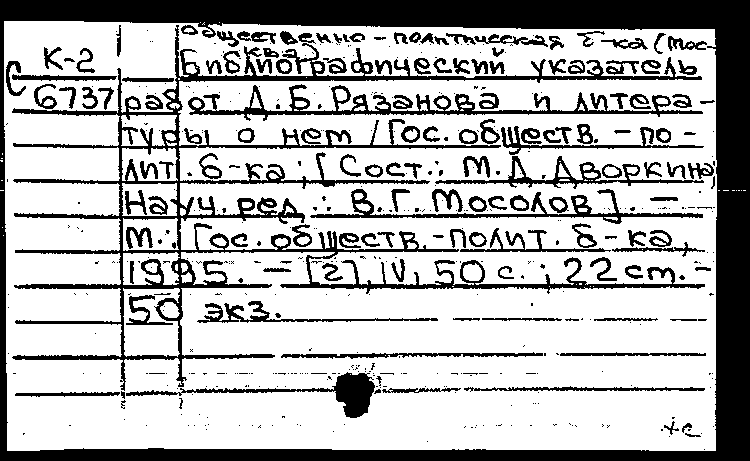 общественно-политическая б-ка (Мос-
ква)
К-2 Библиографический указатель
С 6737 работ Д.Б. Рязанова и литера-
туры о нем / Гос. обществ.-по-
лит. б-ка ; [Сост.: М.Д. Дворкина,
Науч. ред.: В.Г. Мосолов]. —
М.: Гос. обществ.-полит. б-ка,
1995. — [2], IV, 50 с. ; 22 см. -
50 экз.
+с